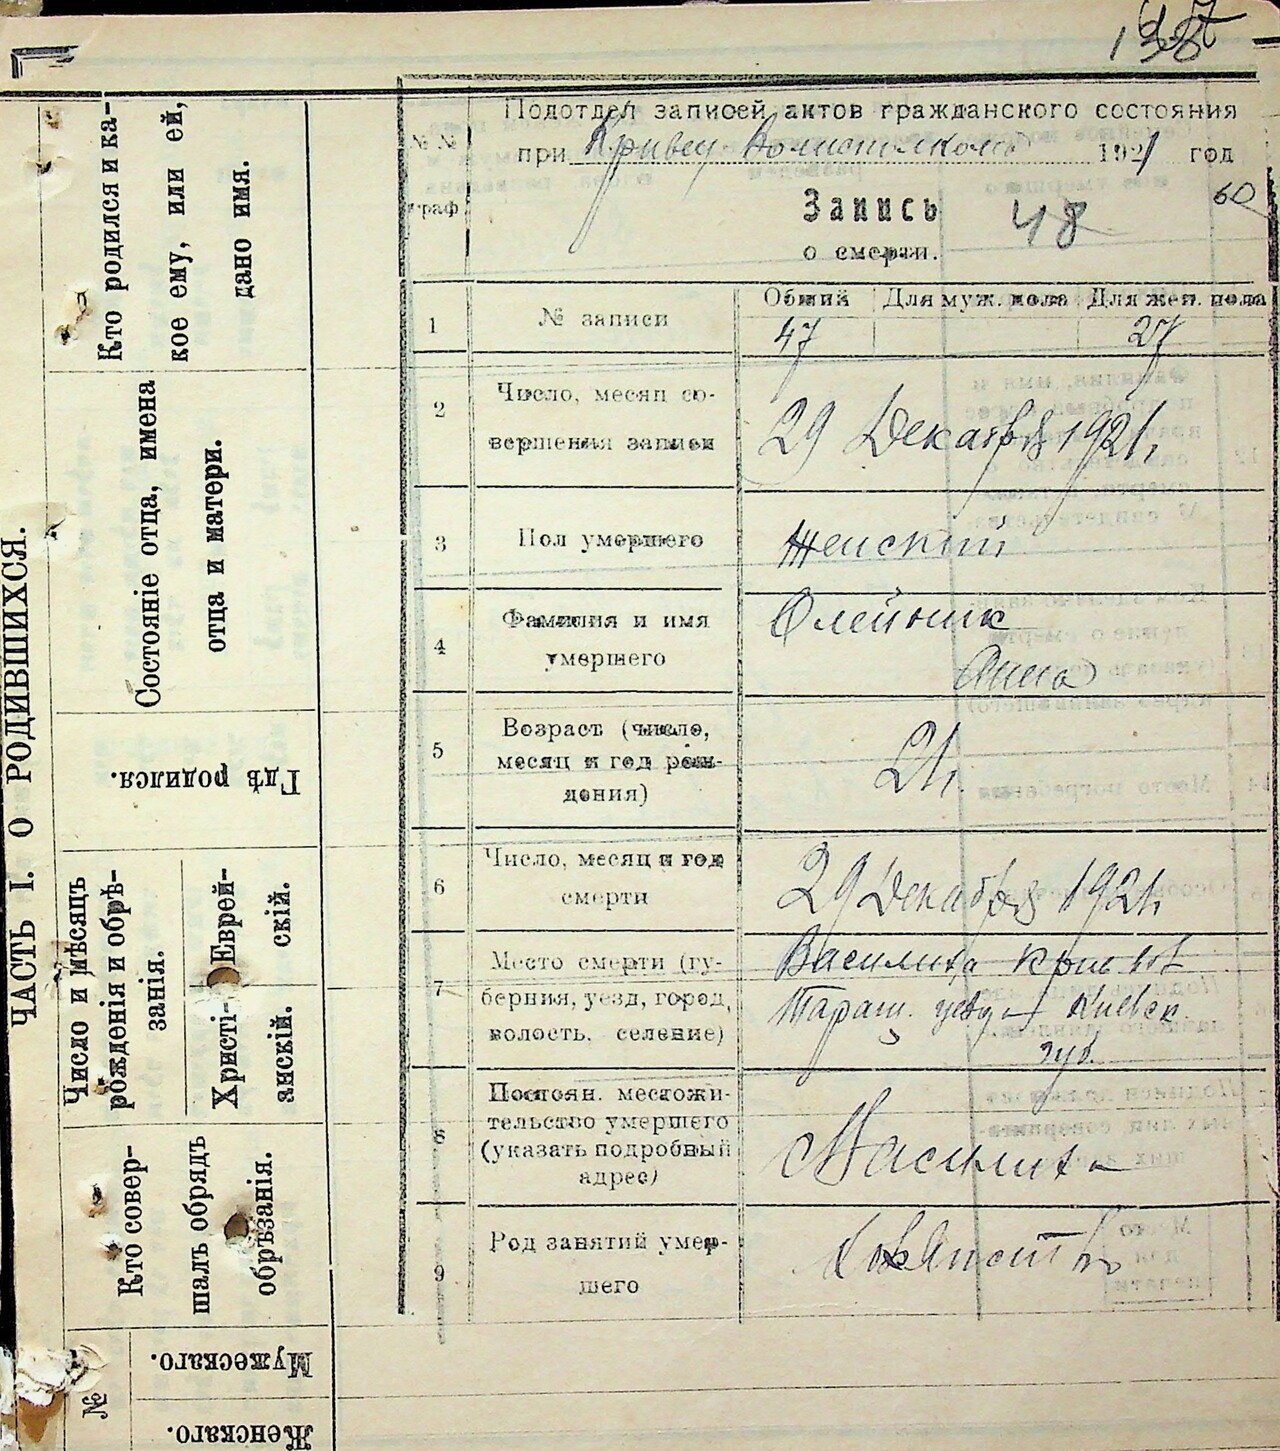 137
60
ЧАСТЬ I. О РОДИВШИХСЯ.
Кто родился и ка-
кое ему, или ей,
дано имя.
Состояніе отца, имена
отца и матери.
Гдѣ родился.
Число и мѣсяцъ
рожденія и обрѣ-
занія.
Христі-
анскій.
Еврей-
скій.
Кто совер-
шалъ обрядъ
обрѣзанія.
№
Мужескаго.
Женскаго.
№ №
граф
Подотдел записей актов гражданского состояния
при Кривец Волисполкоме 1921 год
Запись 48
о смерти.
1
№ записи
Общий Для муж. пола Для жен. пола
47 27
2
Число, месяц со-
вершения записи
29 Декабря 1921г.
3
Пол умершего
Женский
4
Фамилия и имя
умершего
Олейник
Анна
5
Возраст (число,
месяц и год рож-
дения)
6
Число, месяц и год
смерти
29 Декабря 1921г.
7
Место смерти (гу-
берния, уезд, город,
волость, селение)
Василиха Крив вол
Таращ. уезда Киевск.
губ.
8
Постоян. местожи-
тельство умершего
(указать подробный
адрес)
Василиха
9
Род занятий умер-
шего